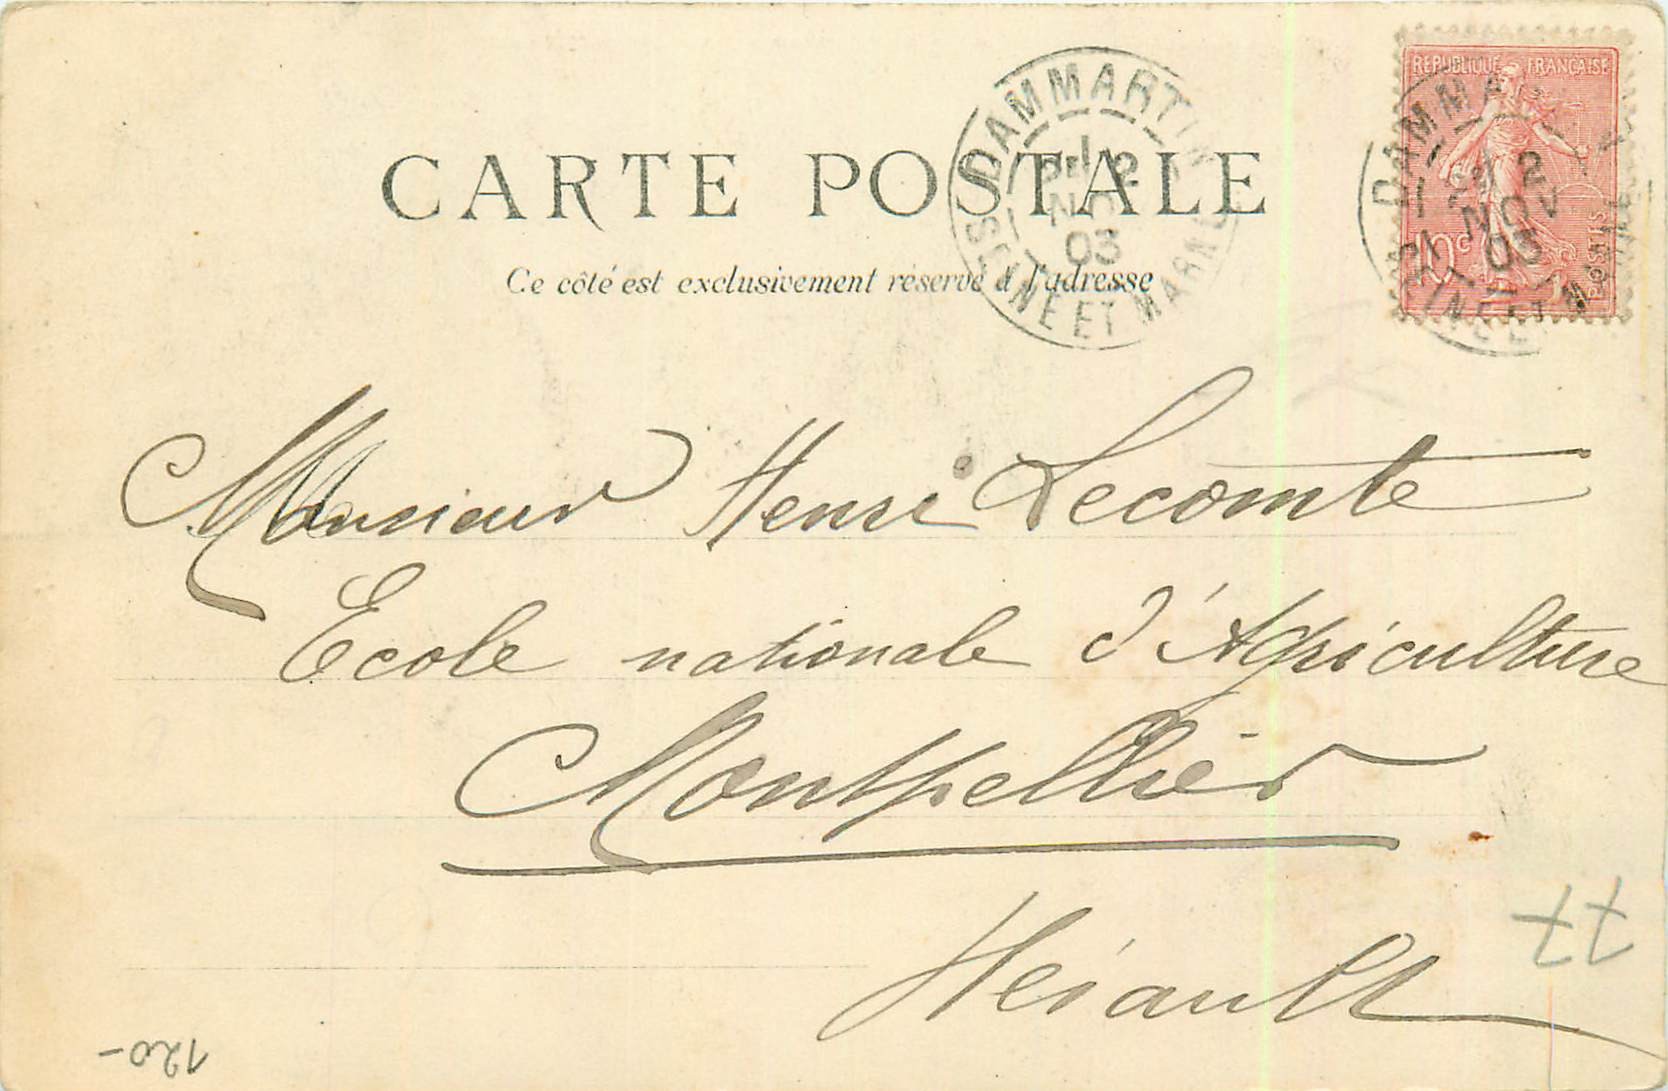 CARTE POSTALE
Ce côté est exclusivement réservé à l'adresse
DAMMARTIN
2
NOV
03
SEINE ET MARNE
REPUBLIQUE FRANÇAISE
10c
POSTES
DAMMA
2
NOV
03
SEINE ET MARNE
Monsieur Henri Lecomte
Ecole nationale d'Agriculture
Montpellier
Hérault
77
120-